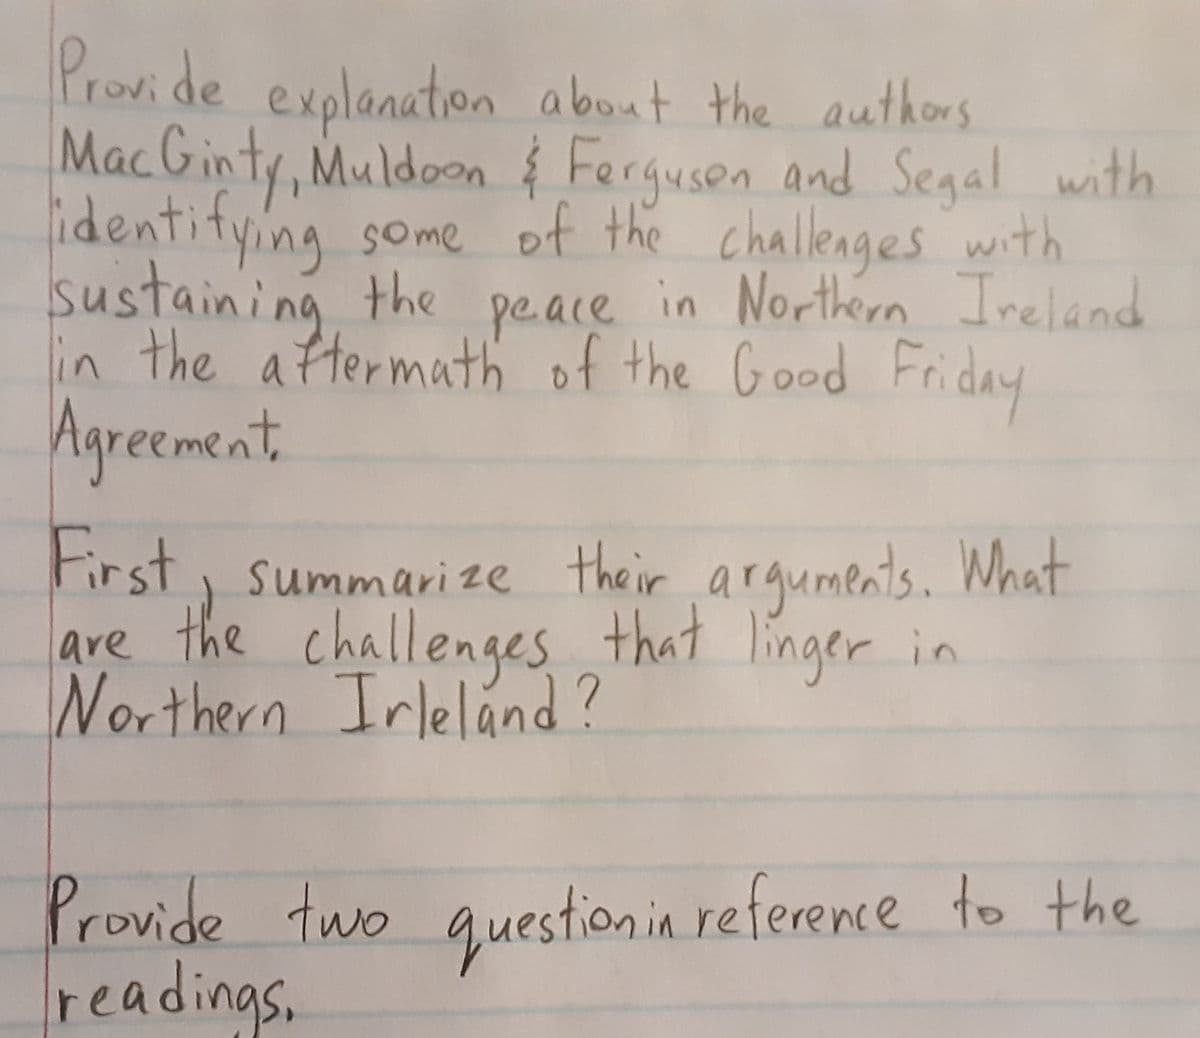 Provide explanation about the authors
MacGinty, Muldoon & Ferguson and Segal with
identifying some of the challenges with
sustaining the peace in Northern Ireland
in the aftermath of the Good Friday
Agreement.
First, summarize their arguments. What
are the challenges that linger in
Northern Irleland?
Provide two question in reference to the
readings.